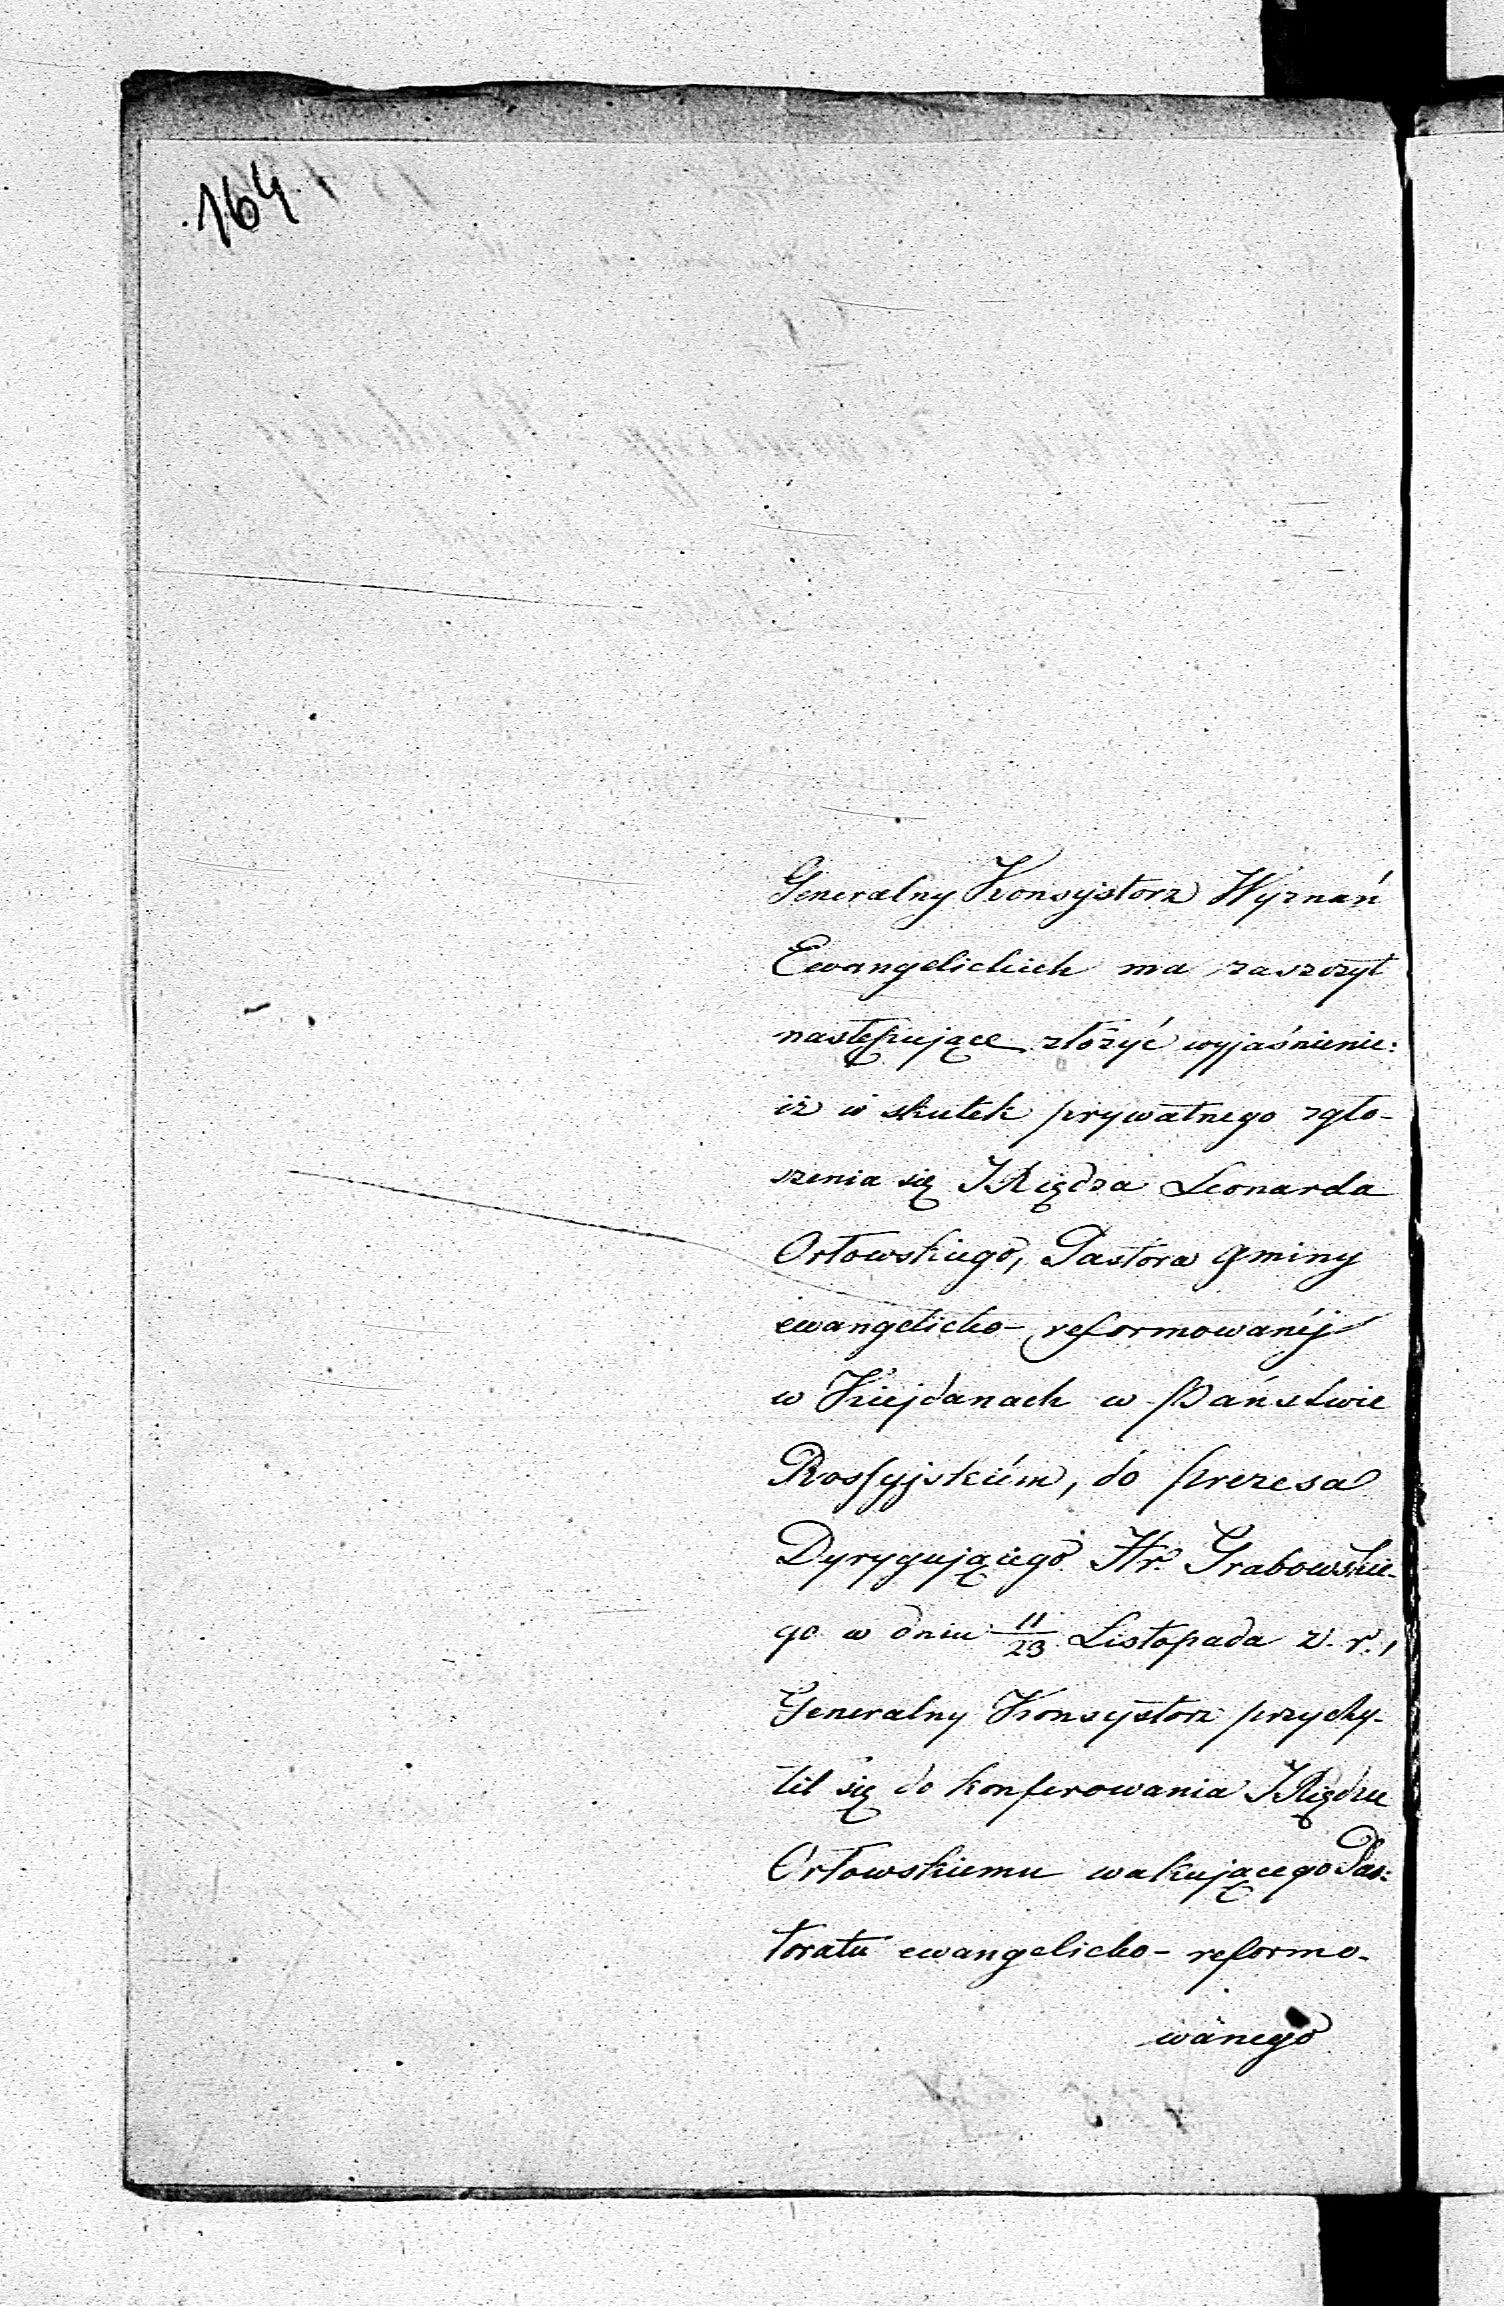 164
Generalny Konsystorz Wyznań
Ewangelickich ma zaszczyt
następujące złożyć wyjaśnienie:
iż w skutek prywatnego zgło-
szenia się JXiędza Leonarda
Orłowskiego, Pastora gminy
ewangelicko-reformowanéj
w Kiejdanach w Państwie
Rossyjskiém, do prezesa
Dyrygującego Hr. Grabowskie-
go w dniu 11/23 Listopada z. r.,
Generalny Konsystorz przychy-
lił się do konferowania JXiędzu
Orłowskiemu wakującego Pas-
toratu ewangelicko-reformo-
wanego